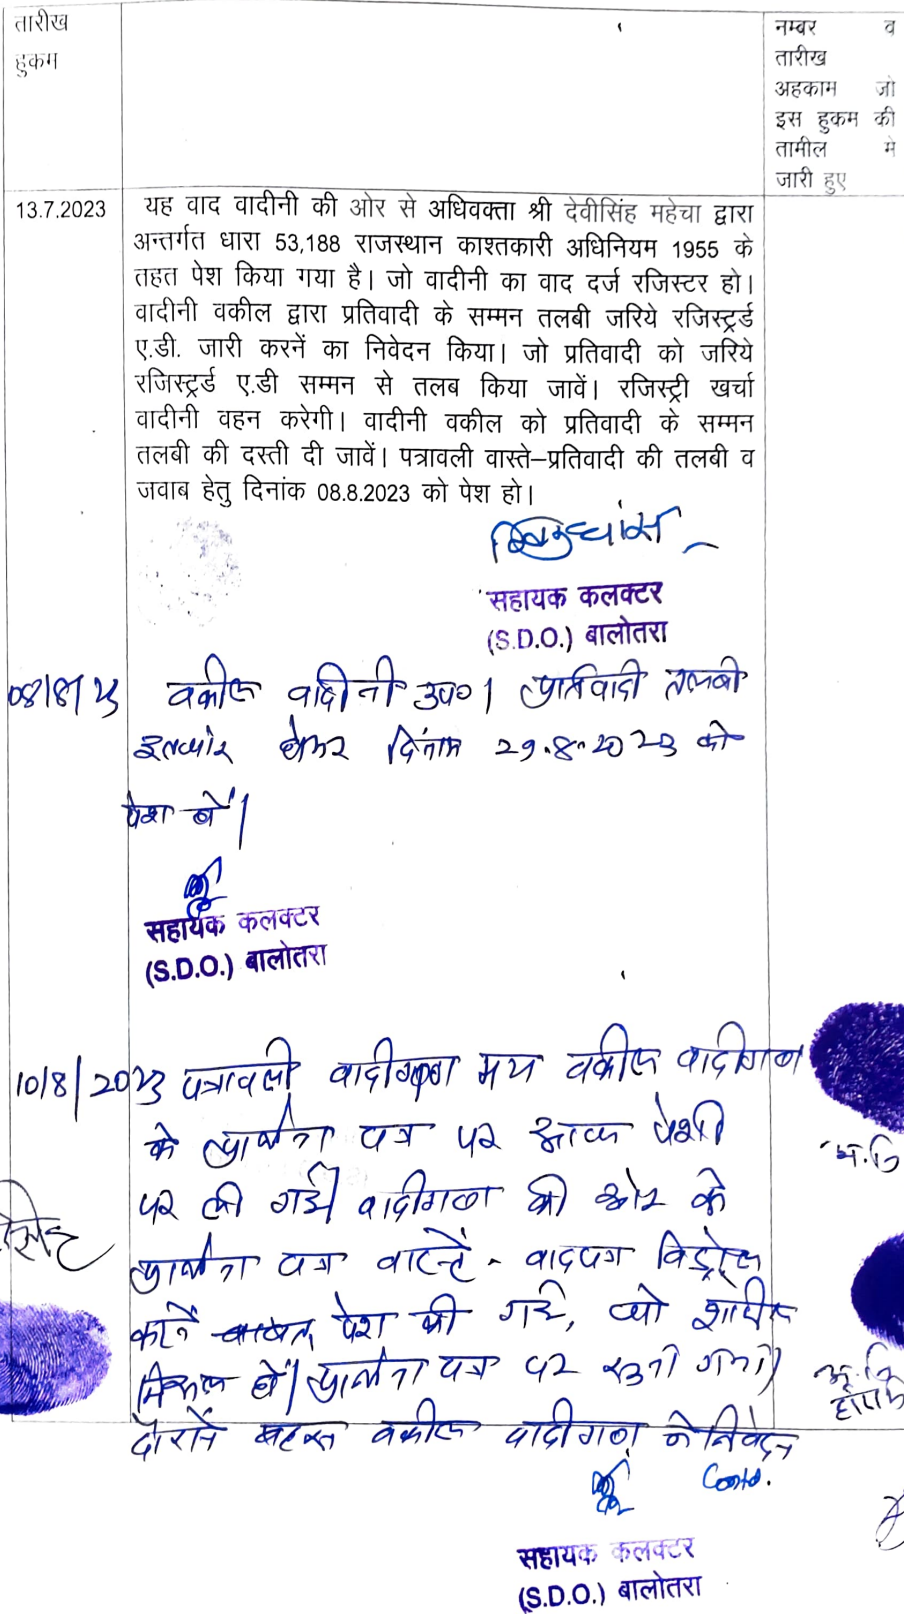 तारीख
हुकम
नम्बर व
तारीख
अहकाम जो
इस हुकम की
तामील मे
जारी हुए
13.7.2023
यह वाद वादीनी की ओर से अधिवक्ता श्री देवीसिंह महेचा द्वारा
अन्तर्गत धारा 53,188 राजस्थान काश्तकारी अधिनियम 1955 के
तहत पेश किया गया है। जो वादीनी का वाद दर्ज रजिस्टर हो।
वादीनी वकील द्वारा प्रतिवादी के सम्मन तलबी जरिये रजिस्ट्रर्ड
ए.डी. जारी करनें का निवेदन किया। जो प्रतिवादी को जरिये
रजिस्ट्रर्ड ए.डी सम्मन से तलब किया जावें। रजिस्ट्री खर्चा
वादीनी वहन करेगी। वादीनी वकील को प्रतिवादी के सम्मन
तलबी की दस्ती दी जावें। पत्रावली वास्ते–प्रतिवादी की तलबी व
जवाब हेतु दिनांक 08.8.2023 को पेश हो।
सहायक कलक्टर
(S.D.O.) बालोतरा
08/8/23 वकील वादीनी उप० । प्रतिवादी तलबी
इन्तजार होकर दिनांक 29.8.2023 को
पेश हो।
सहायक कलक्टर
(S.D.O.) बालोतरा
10/8/2023 पत्रावली वादीगण मय वकील वादीगण
के प्रार्थना पत्र पर आज पेशी
पर ली गई। वादीगण की ओर के
प्रार्थना पत्र वास्ते - वादपत्र विड्रोल
करने बाबत पेश की गई, जो शामिल
मिसल हो। प्रार्थना पत्र पर सुनी गयी।
दौराने बहस वकील वादीगण ने निवेदन
Contd.
सहायक कलक्टर
(S.D.O.) बालोतरा